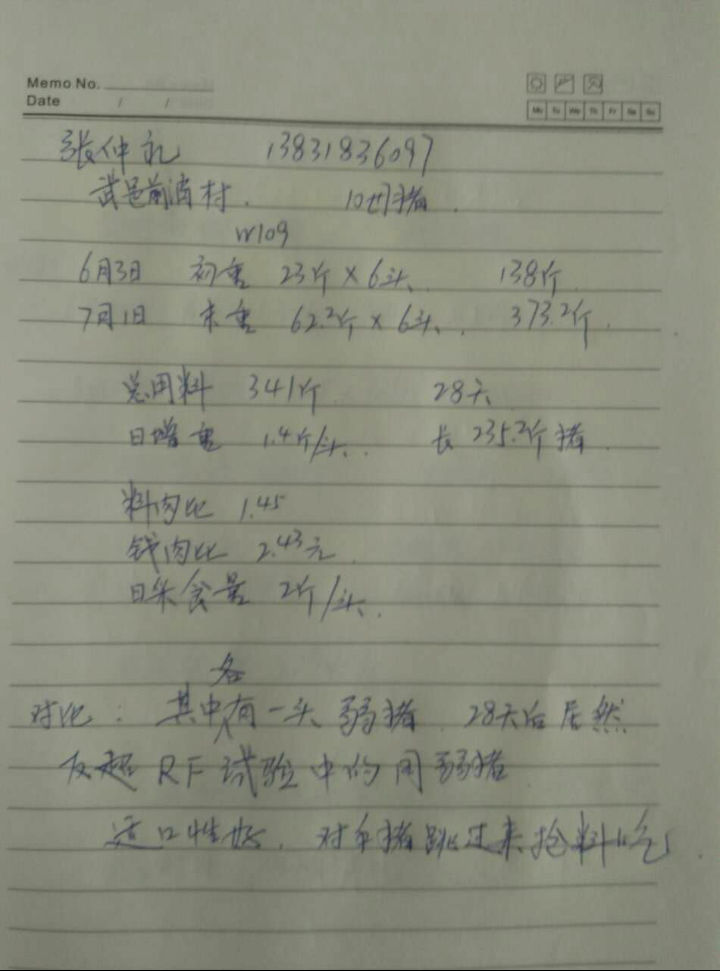 Memo No.
Date / /
Mo Tu We Th Fr Sa Su
张仲礼 13831836097
武邑前 村. 10 猪.
W109
6月3日 初重 23斤×6头. 138斤.
7月1日 末重 62.2斤×6头. 373.2斤.
总用料 341斤 28天
日增重 1.4斤/头. 长235.2斤猪.
料肉比 1.45
钱肉比 2.43元
日采食量 2斤/头.
各
对比: 其中有一头弱猪 28天后居然
反超RF试验中的同弱猪
适口性好. 对 猪跳过来抢料吃